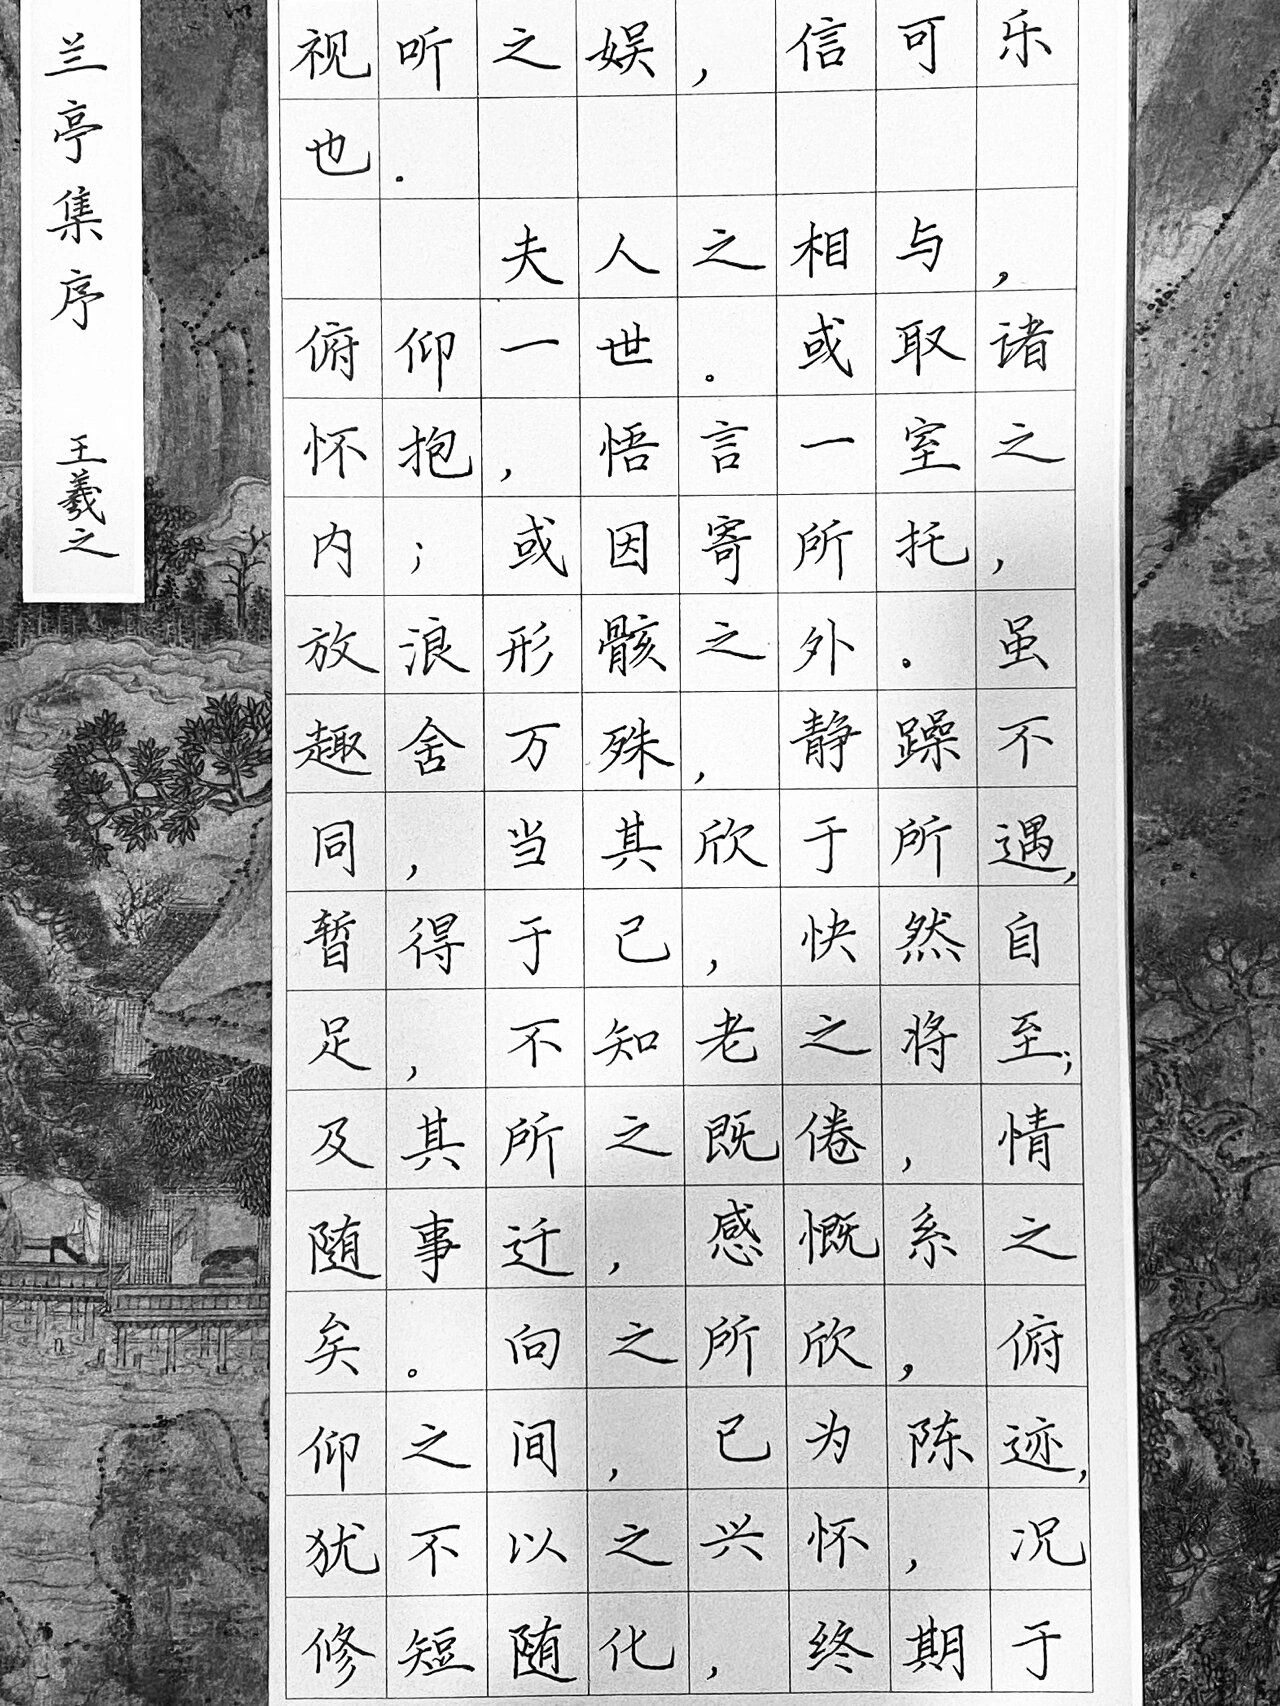 兰亭集序
王羲之
视听之娱，信可乐
也．
夫人之相与，
俯仰一世。或取诸
怀抱，悟言一室之
内；或因寄所托，
放浪形骸之外。虽
趣舍万殊，静躁不
同，当其欣于所遇，
暂得于己，快然自
足，不知老之将至；
及其所之既倦，情
随事迁，感慨系之
矣。向之所欣，俯
仰之间，已为陈迹，
犹不以之兴怀，况
修短随化，终期于